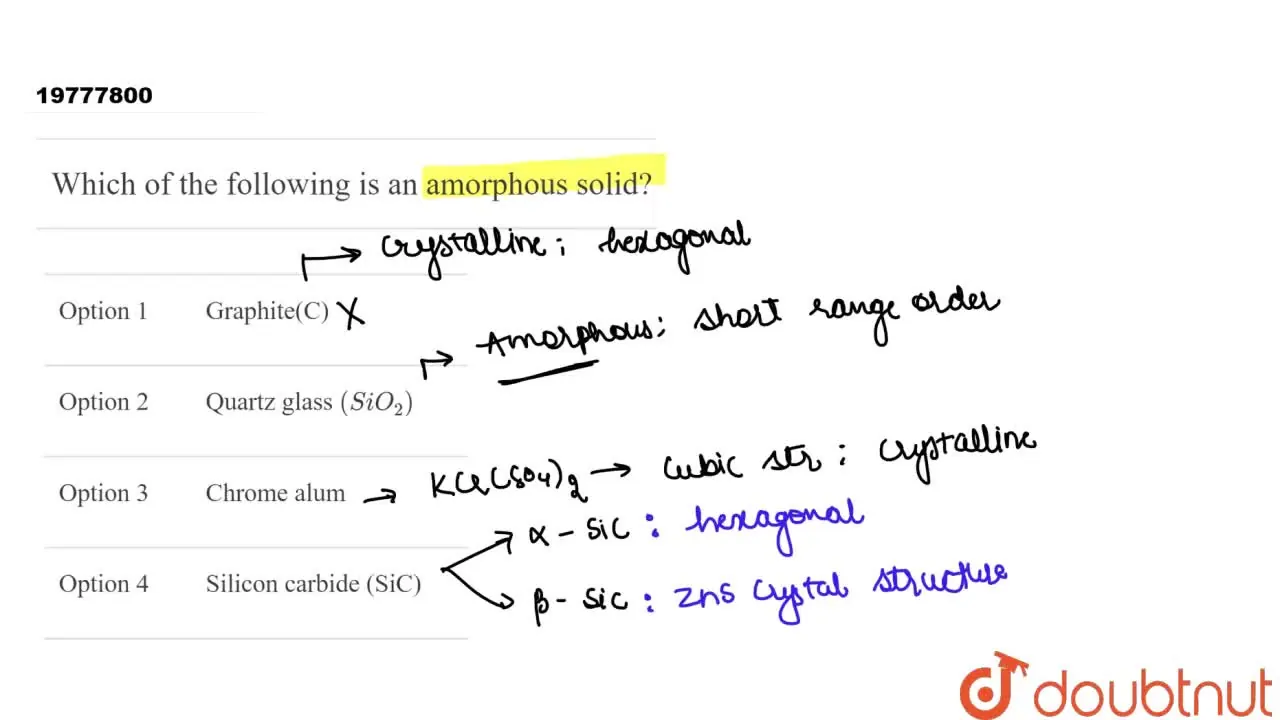 19777800
Which of the following is an amorphous solid?
Crystalline; hexagonal
Option 1 Graphite(C) X
Amorphous: short range order
Option 2 Quartz glass (SiO2)
Option 3 Chrome alum → KCr(SO4)2 → Cubic str : Crystalline
α - SiC : hexagonal
Option 4 Silicon carbide (SiC)
β - SiC : ZnS Crystal structure
doubtnut